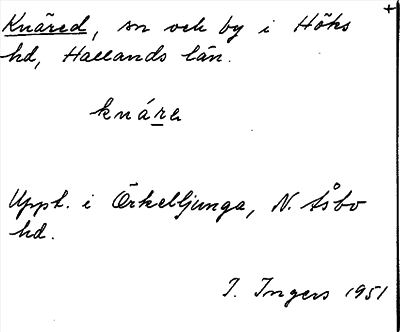 Knäred, sn och by i Höks
hd, Hallands län.
knárɐ
Uppt. i Örkelljunga, N. Åsbo
hd.
I. Ingers 1951